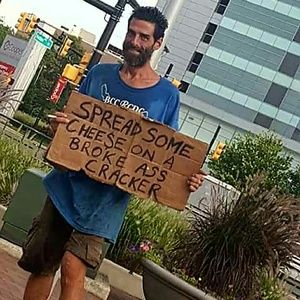 SPREAD SOME
CHEESE ON A
BROKE ASS
CRACKER